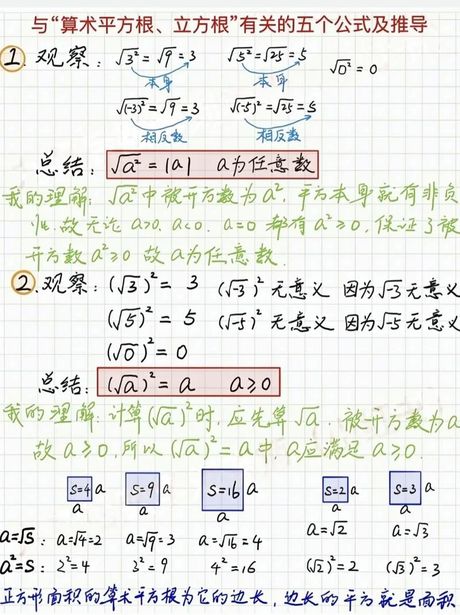 与“算术平方根、立方根”有关的五个公式及推导
① 观察: √3² = √9 = 3  √5² = √25 = 5  √0² = 0
本身  本身
√(-3)² = √9 = 3  √(-5)² = √25 = 5
相反数  相反数
总结: √a² = |a|  a为任意数
我的理解: √a² 中被开方数为 a², 平方本身就有非负
性, 故无论 a>0, a<0, a=0 都有 a²≥0, 保证了被
开方数 a²≥0 故 a为任意数.
② 观察: (√3)² = 3  (√-3)² 无意义 因为√-3 无意义
(√5)² = 5  (√-5)² 无意义 因为√-5 无意义
(√0)² = 0
总结: (√a)² = a  a≥0
我的理解: 计算(√a)²时, 应先算√a, 被开方数为a
故 a≥0, 所以 (√a)² = a 中, a应满足 a≥0.
S=4 a  S=9 a  S=16 a  S=2 a  S=3 a
a  a  a  a  a
a=√S: a=√4=2  a=√9=3  a=√16=4  a=√2  a=√3
a²=S: 2²=4  3²=9  4²=16  (√2)²=2  (√3)²=3
正方形面积的算术平方根为它的边长, 边长的平方就是面积